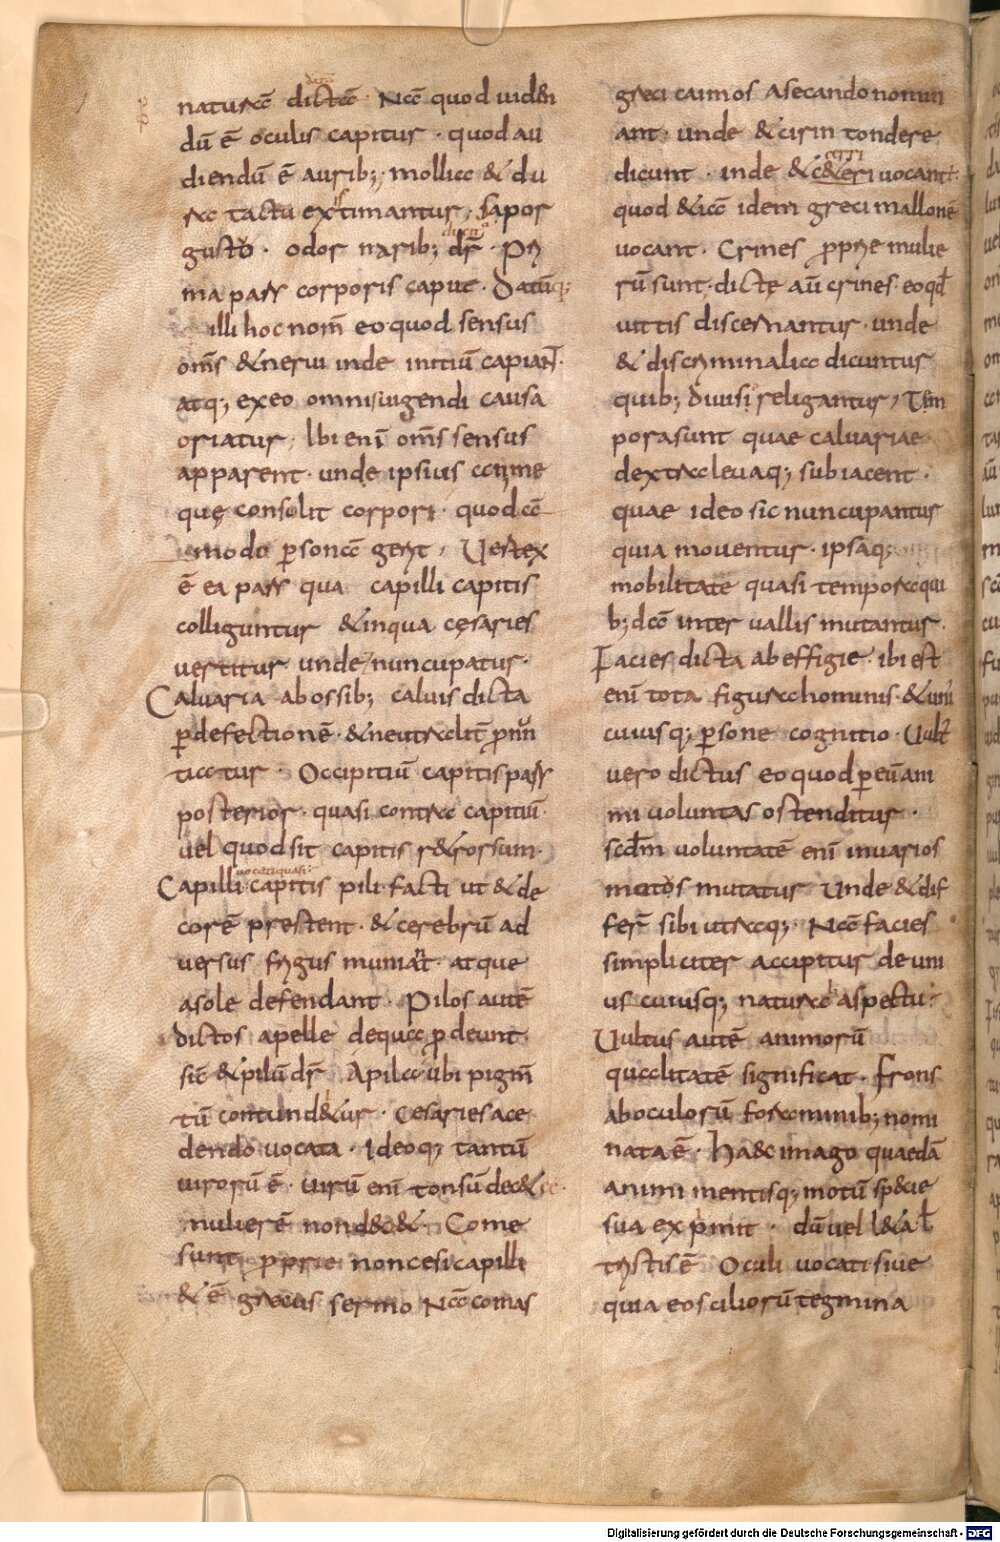 natura dicta. Na quod uiden
dū ē oculis capitur. quod au
diendū ē aurib; mollia & du
ra tactu extimantur, sapor
gusto. odor narib; dr̄. Pri
ma pars corporis caput. Datūq;
illi hoc nom̄ eo quod sensus
om̄s & nerui inde initiū capiant.
atq; ex eo omnis uigendi causa
oriatur, Ibi enī om̄s sensus
apparent. unde ipsius anime
quę consolit corpori. quod ā
modo p̱sona gerit, Uertex
ē ea pars qua capilli capitis
colliguntur & in qua cęsaries
uertitur unde nuncupatur.
Caluaria ab ossib; caluis dicta
p̱ defectionē. & neutralit̄ pronun
tiatur. Occipitiū capitis pars
posterior. quasi contra capitiū.
uel quod sit capitis r&rorsum.
uocati quasi
Capilli capitis pili facti ut & de
corē prestent. & cerebrū ad
uersus frigus muniat. atque
a sole defendant. Pilos autē
dictos a pelle de qua prodeunt.
sic & pilū dr̄ A pila ubi pigm̄
tū contund&ur. Cesaries a ce
dendo uocata. Ideoq; tantū
uirorū ē. uirū enī tonsū dec&
mulierē non dec&. Come
sunt proprie non cesi capilli
& ē grecus sermo Na comas
greci caimos a secando nomin
ant. unde & cirin tondere
cirri
dicunt. inde & c&eri uocant̄.
quod & ia idem greci mallonē
uocant. Crines proprie mulie
rū sunt. dictę aū crines. eo qd̄
uittis discernantur. unde
& discriminalia dicuntur
quib; diuisi religantur, Tem
pora sunt quae caluariae
dextra leuaq; subiacent.
quae ideo sic nuncupantur
quia mouentur. ipsaq;
mobilitate quasi tempora qui
b;da interuallis mutantur.
Facies dicta ab effigie. ibi est
enī tota figura hominis. & uni
cuiusq; p̱sone cognitio. Uult
uero dictus eo quod p̱ eū ani
mi uoluntas ostenditur.
scd̄m uoluntatē enī in uarios
motos mutatur Unde & dif
fer̄ sibi utraq;. Na facies
simpliciter accipitur de uni
us cuiusq; natura aspectu.
Uultus autē animorū
qualitatē significat. Frons
ab oculorū foraminib; nomi
nata ē. Haec imago quaedā
animi mentisq; motū sp&ie
sua exprimit. dū uel l&a ł
tristis ē Oculi uocati siue
quia eos ciliorū tegmina
Digitalisierung gefördert durch die Deutsche Forschungsgemeinschaft - DFG